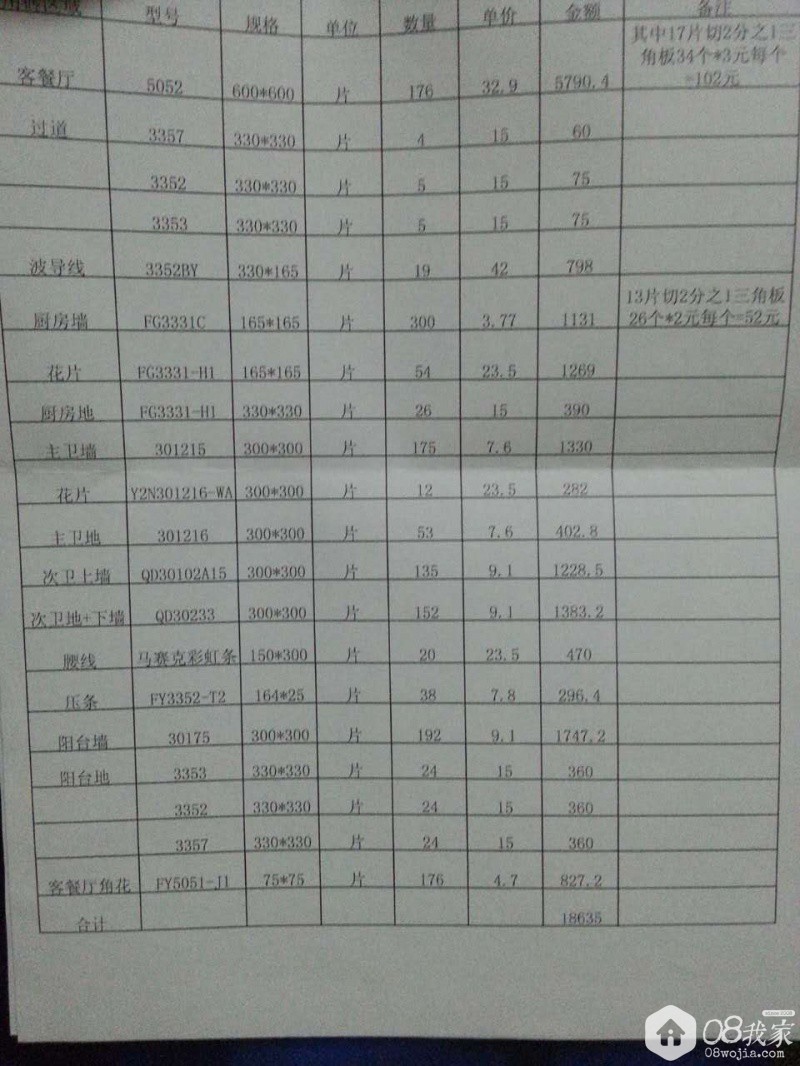 区域 型号 规格 单位 数量 单价 金额 备注
客餐厅 5052 600*600 片 176 32.9 5790.4 其中17片切2分之1三角板34个*3元每个=102元
过道 3357 330*330 片 4 15 60
3352 330*330 片 5 15 75
3353 330*330 片 5 15 75
波导线 3352BY 330*165 片 19 42 798
厨房墙 FG3331C 165*165 片 300 3.77 1131 13片切2分之1三角板26个*2元每个=52元
花片 FG3331-H1 165*165 片 54 23.5 1269
厨房地 FG3331-H1 330*330 片 26 15 390
主卫墙 301215 300*300 片 175 7.6 1330
花片 Y2N301216-WA 300*300 片 12 23.5 282
主卫地 301216 300*300 片 53 7.6 402.8
次卫上墙 QD30102A15 300*300 片 135 9.1 1228.5
次卫地+下墙 QD30233 300*300 片 152 9.1 1383.2
腰线 马赛克彩虹条 150*300 片 20 23.5 470
压条 FY3352-T2 164*25 片 38 7.8 296.4
阳台墙 30175 300*300 片 192 9.1 1747.2
阳台地 3353 330*330 片 24 15 360
3352 330*330 片 24 15 360
3357 330*330 片 24 15 360
客餐厅角花 FY5051-J1 75*75 片 176 4.7 827.2
合计 18635
08我家
08wojia.com